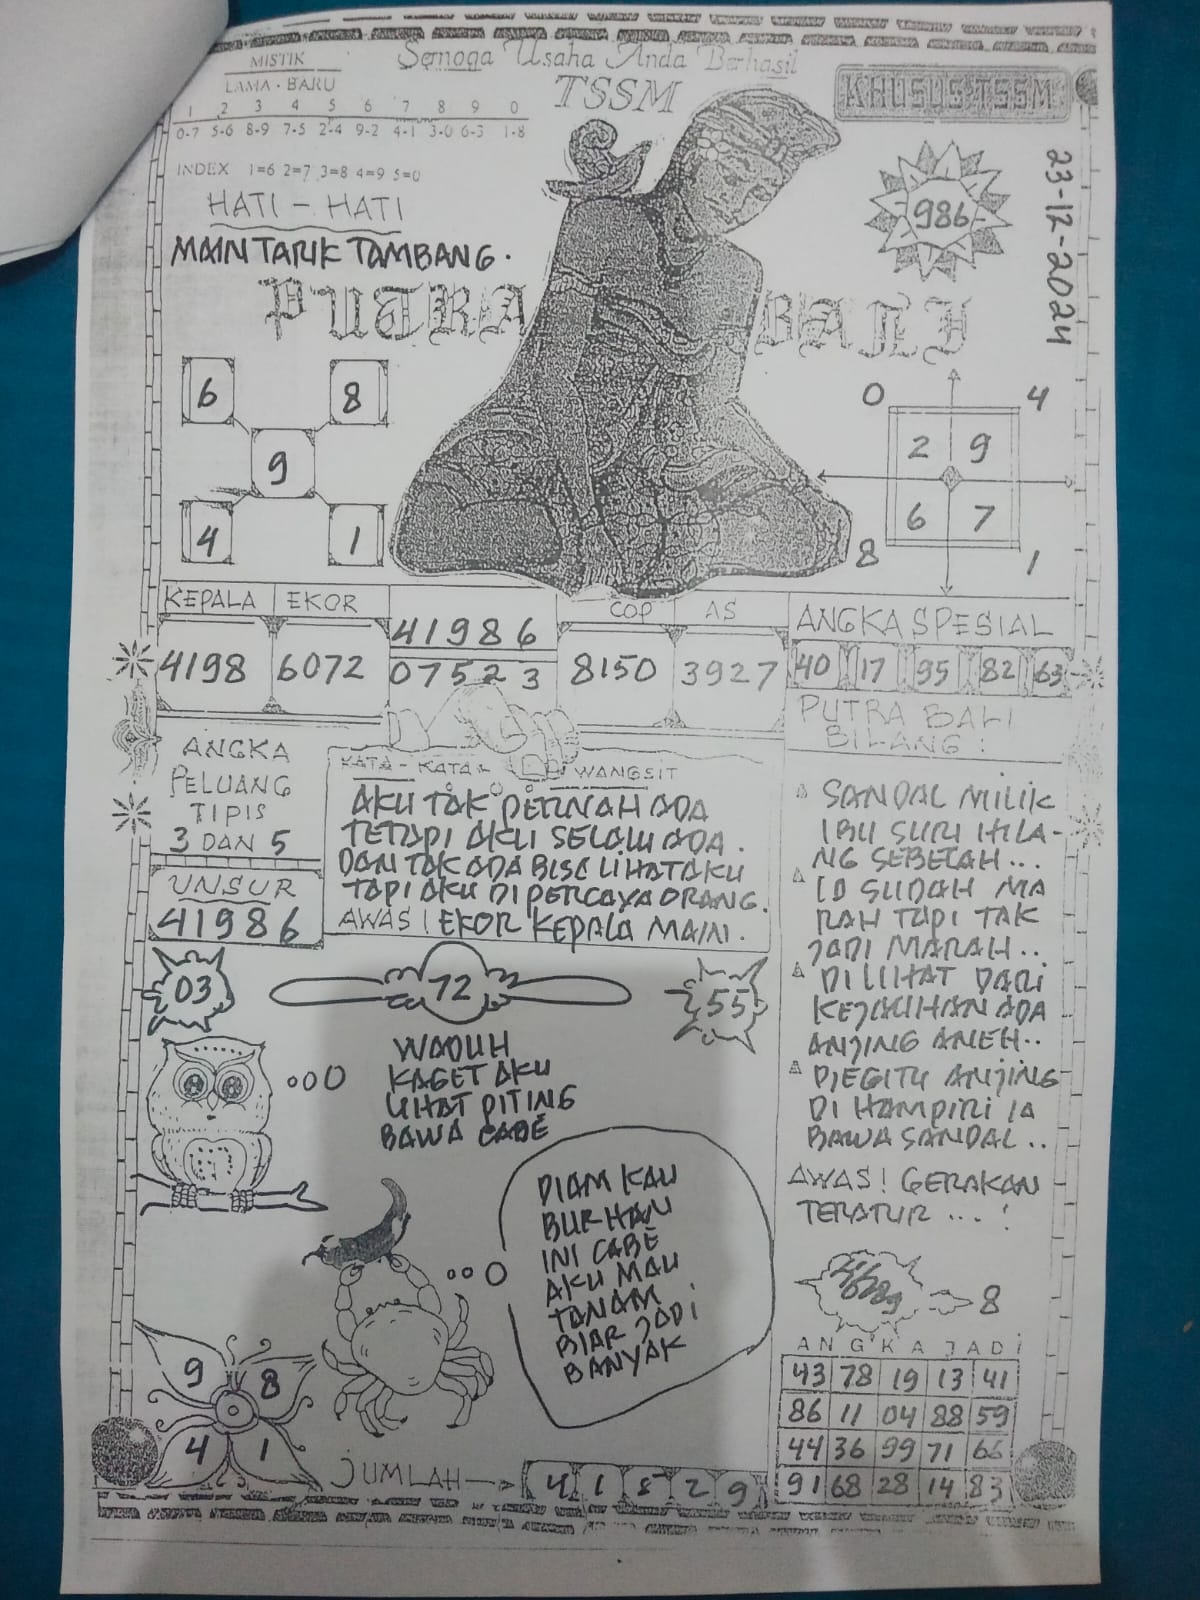 Semoga Usaha Anda Berhasil
TSSM
KHUSUS TSSM
MISTIK
LAMA - BARU
1 2 3 4 5 6 7 8 9 0
0-7 5-6 8-9 7-5 2-4 9-2 4-1 3-0 6-3 1-8
INDEX 1=6 2=7 3=8 4=9 5=0
HATI - HATI
MAIN TARIK TAMBANG.
986
23-12-2024
PUTRA BALI
6 8
9
4 1
0 4
2 9
6 7
8 1
KEPALA EKOR COP AS
4198 6072
41986
07523
8150 3927
ANGKA SPESIAL
40 17 95 82 63
ANGKA
PELUANG
TIPIS
3 DAN 5
UNSUR
41986
KATA - KATA WANGSIT
AKU TAK PERNAH ADA
TETAPI AKU SELALU ADA.
DAN TAK ADA BISA LIHAT AKU
TAPI AKU DI PERCAYA ORANG.
AWAS! EKOR KEPALA MAIN.
PUTRA BALI
BILANG :
SANDAL MILIK
IBU SURI HILA-
NG SEBELAH...
IA SUDAH MA
RAH TAPI TAK
JADI MARAH...
DI LIHAT DARI
KEJAUHAN ADA
ANJING ANEH..
BEGITU ANJING
DI HAMPIRI IA
BAWA SANDAL..
AWAS! GERAKAN
TERATUR ...!
03
72
55
WADUH
KAGET AKU
LIHAT PITING
BAWA CABE
DIAM KAU
BURHAN
INI CABE
AKU MAU
TANAM
BIAR JADI
BANYAK
8
9 8
4 1
JUMLAH
4 1 8 2 9
ANGKA JADI
43 78 19 13 41
86 11 04 88 59
44 36 99 71 66
91 68 28 14 83